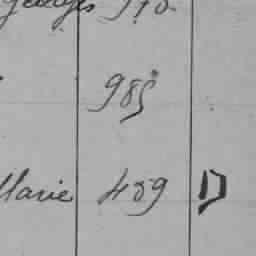 Georges 970.
985
Marie 489 D